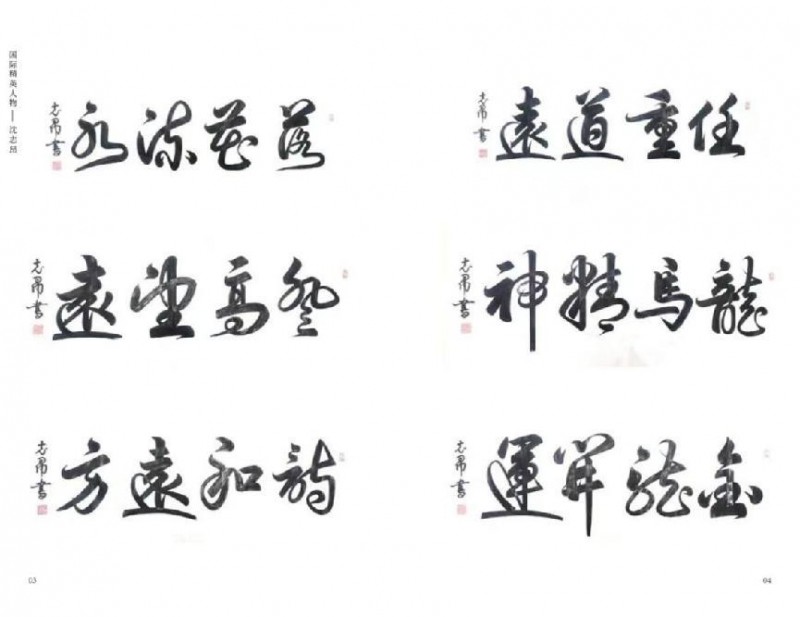 国际精英人物——沈志昂
落花流水
志昂書
登高望遠
志昂書
詩和遠方
志昂書
03
任重道遠
志昂書
龍馬精神
志昂書
金龍開運
志昂書
04